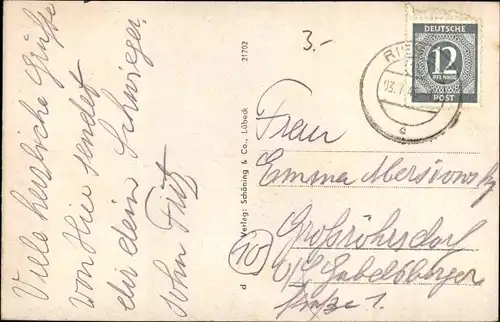 Viele herzliche Grüße
von Hier sendet
dir dein Schwieger
sohn Fritz
21702
Verlag: Schöning & Co., Lübeck
d
10
3.-
DEUTSCHE
12
PFENNIG
POST
Frau
Emma Mersiovsky
Großröhrsdorf
Gabelsberger
straße 1.